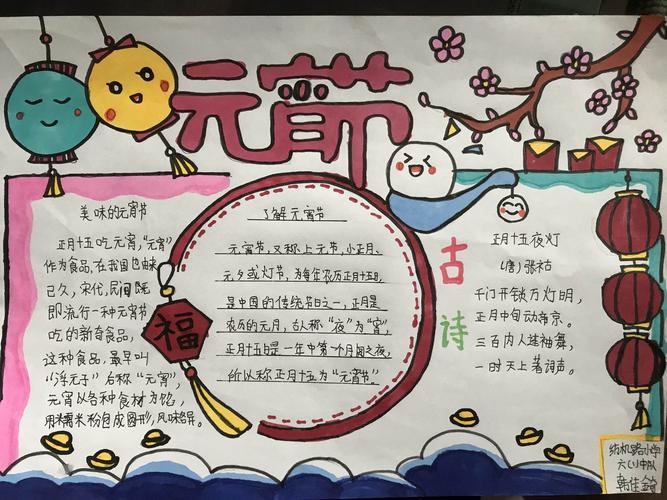 元宵節
美味的元宵节
正月十五吃元宵,"元宵"
作为食品,在我国也由来
已久,宋代,民间既
即流行一种元宵节
吃的新奇食品,
这种食品,最早叫
"浮元子"右称"元宵",
元宵以各种食材为馅,
用糯米粉包成圆形,风味各异。
福
了解元宵节
元宵节,又称上元节,小正月、
元夕或灯节,为每年农历正月十五日,
是中国的传统节日之一,正月是
农历的元月,古人称"夜"为"宵",
正月十五日是一年中第一个月圆之夜,
所以称正月十五为"元宵节"。
古诗
正月十五夜灯
(唐)张祜
千门开锁万灯明,
正月中旬动帝京。
三百内人连袖舞,
一时天上著词声。
纺机路小学
六(1)中队
韩佳